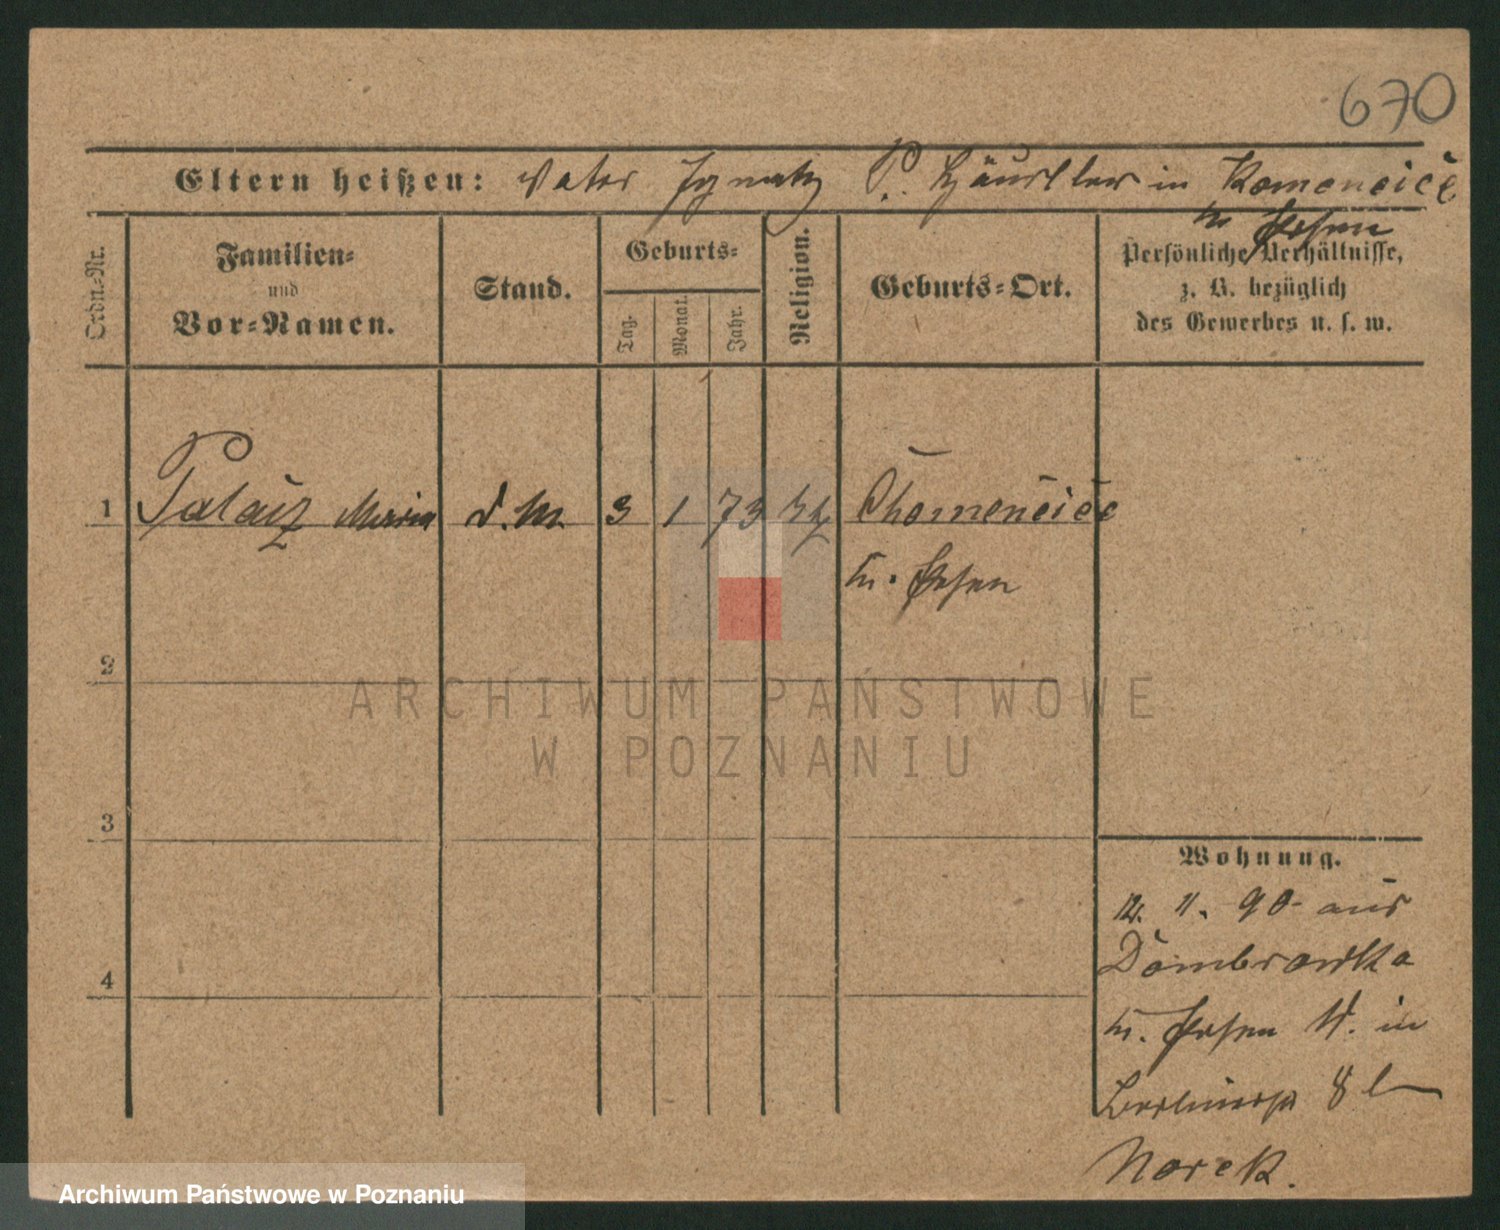 670
Eltern heißen: Vater Ignatz P. Häusler in Komencice
Kr. Posen
Ordn.-Nr.
Familien-
und
Vor-Namen.
Stand.
Geburts-
Tag.
Monat.
Jahr.
Religion.
Geburts-Ort.
Persönliche Verhältnisse,
z. B. bezüglich
des Gewerbes u. s. w.
1 Palacz Maria d. M. 3 1 73 Chomencice
Kr. Posen
2
3
4
Wohnung.
12. 11. 90 aus
Dombrowka
Kr. Posen N. in
Berlinerstr 8 b
Norek.
ARCHIWUM PAŃSTWOWE
W POZNANIU
Archiwum Państwowe w Poznaniu